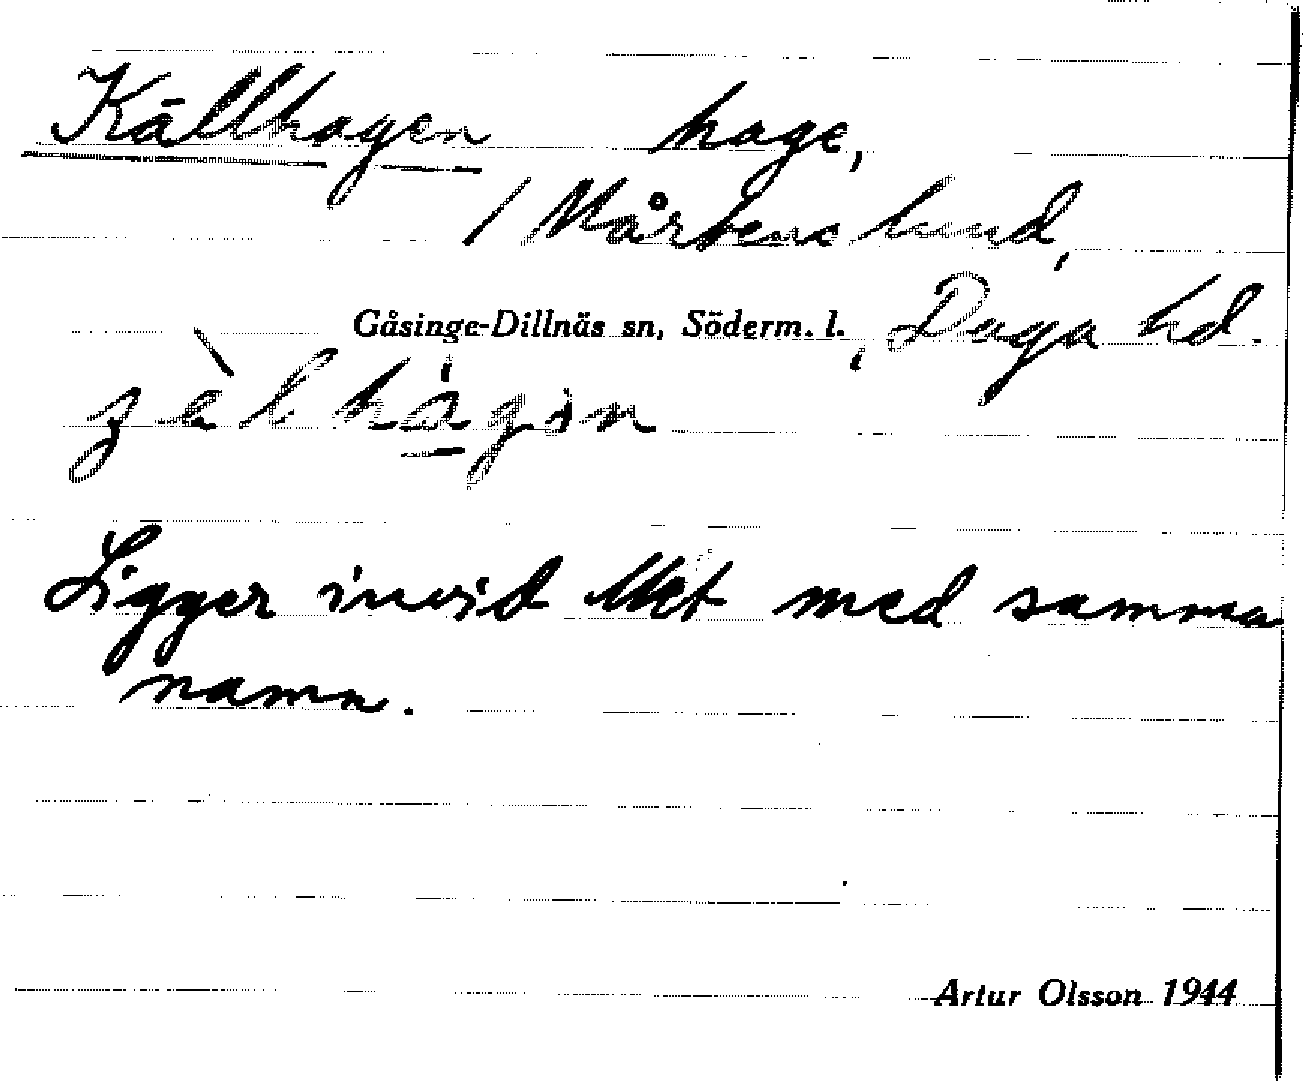 Källhagen hage,
/ Mårtenslund,
Gåsinge-Dillnäs sn, Söderm. l., Daga hd.
Ligger invid
med samma
namn.
Artur Olsson 1944